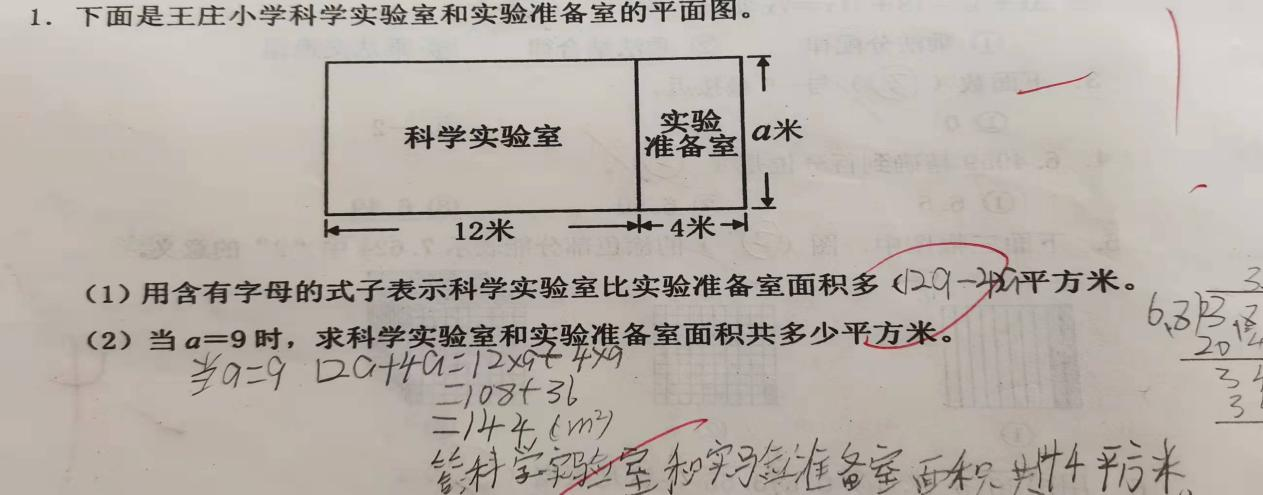 1. 下面是王庄小学科学实验室和实验准备室的平面图。
科学实验室
实验
准备室
a米
12米
4米
(1)用含有字母的式子表示科学实验室比实验准备室面积多(12a-4a)平方米。
(2)当a=9时，求科学实验室和实验准备室面积共多少平方米。
当a=9 12a+4a=12×9+4×9
=108+36
=144(m²)
答:科学实验室和实验准备室面积共144平方米.